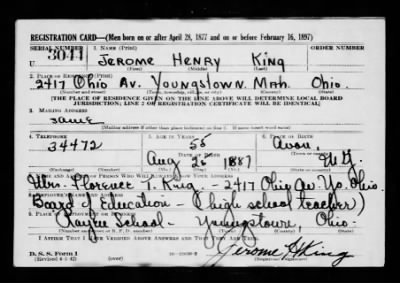 REGISTRATION CARD—(Men born on or after April 28, 1877 and on or before February 16, 1897)
SERIAL NUMBER 1. NAME (Print) ORDER NUMBER
U 3041 JEROME HENRY KING
(First) (Middle) (Last)
2. PLACE OF RESIDENCE (Print)
2417 Ohio Av. Youngstown. Mah. Ohio.
(Number and street) (Town, township, village, or city) (County) (State)
[THE PLACE OF RESIDENCE GIVEN ON THE LINE ABOVE WILL DETERMINE LOCAL BOARD
JURISDICTION; LINE 2 OF REGISTRATION CERTIFICATE WILL BE IDENTICAL]
3. MAILING ADDRESS
same
4. TELEPHONE 5. AGE IN YEARS 6. PLACE OF BIRTH
34472 55 Avon,
DATE OF BIRTH
Aug 26 1887 N.Y.
7. NAME AND ADDRESS OF PERSON WHO WILL ALWAYS KNOW YOUR ADDRESS
Mrs. Florence T. King - 2417 Ohio Av. Yo. Ohio.
8. EMPLOYER'S NAME AND ADDRESS
Board of Education - (high school teacher)
9. PLACE OF EMPLOYMENT OR BUSINESS
Rayen School - Youngstown, Ohio.
(Number and street or R. F. D. number) (Town) (County) (State)
I AFFIRM THAT I HAVE VERIFIED ABOVE ANSWERS AND THAT THEY ARE TRUE.
D. S. S. Form 1
(Revised 4-1-42) Jerome H King